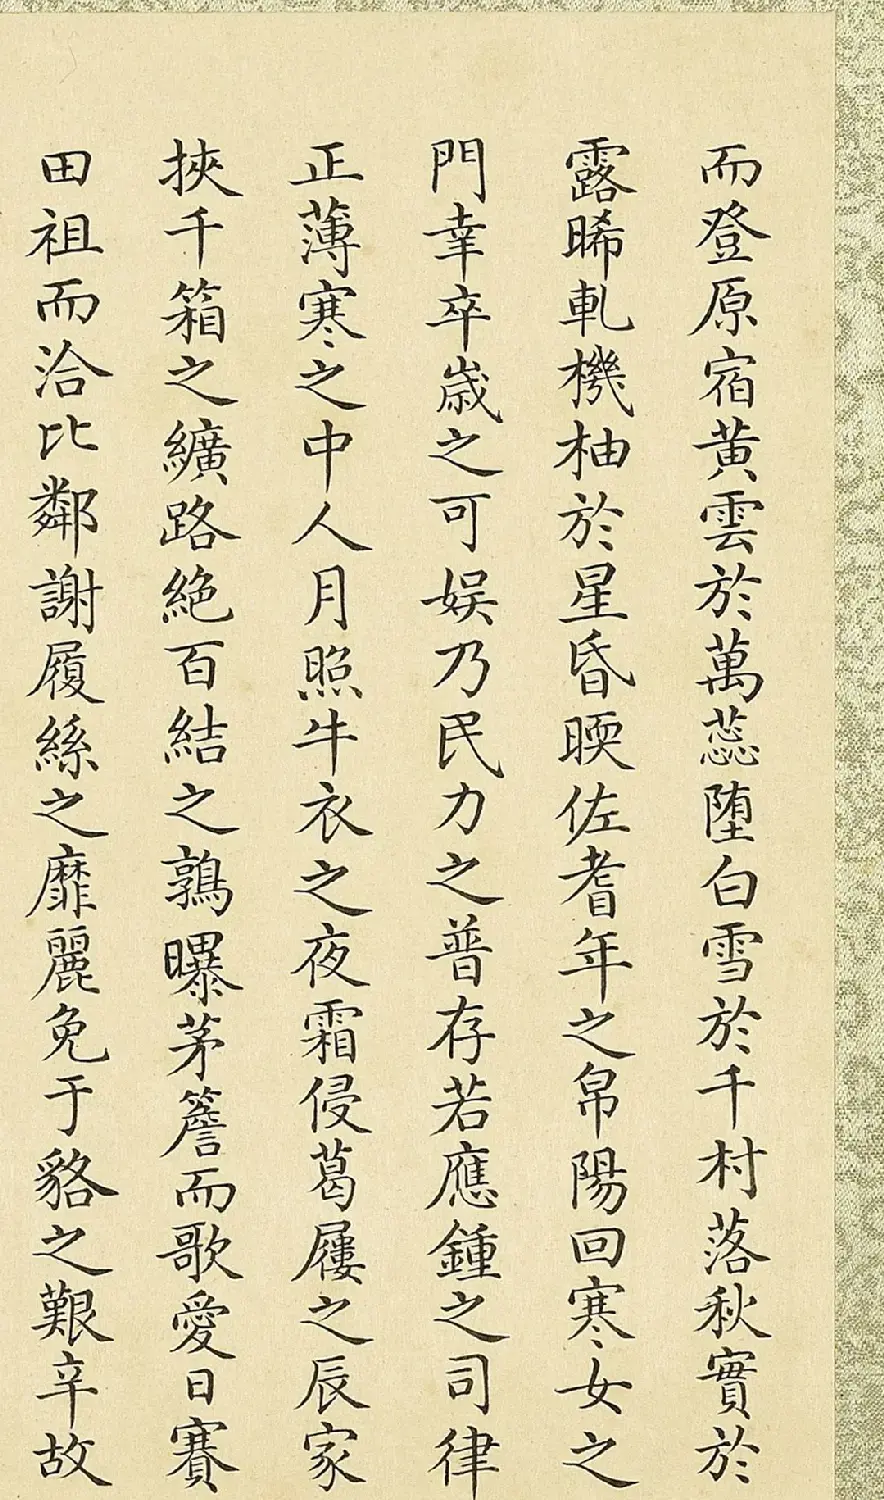 而登原宿黄雲於萬蕊墮白雪於千村落秋實於
露晞軋機柚於星昏煗佐耆年之帛陽回寒女之
門幸卒歲之可娱乃民力之普存若應鍾之司律
正薄寒之中人月照牛衣之夜霜侵葛屨之辰家
挾千箱之纊路絶百結之鶉曝茅簷而歌愛日賽
田祖而洽比鄰謝履絲之靡麗免于貉之艱辛故